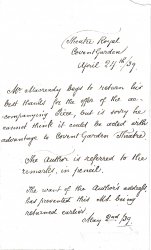 Theatre Royal
Covent Garden
April 24th 39.
Mr Macready begs to return his
best thanks for the offer of the ac-
companying Piece, but is sorry he
cannot think it could be acted with
advantage to Covent Garden Theatre
The Author is referred to the
remarks, in pencil.
The want of the Author's address
has prevented this MS. being
returned earlier.
May 2nd 39.